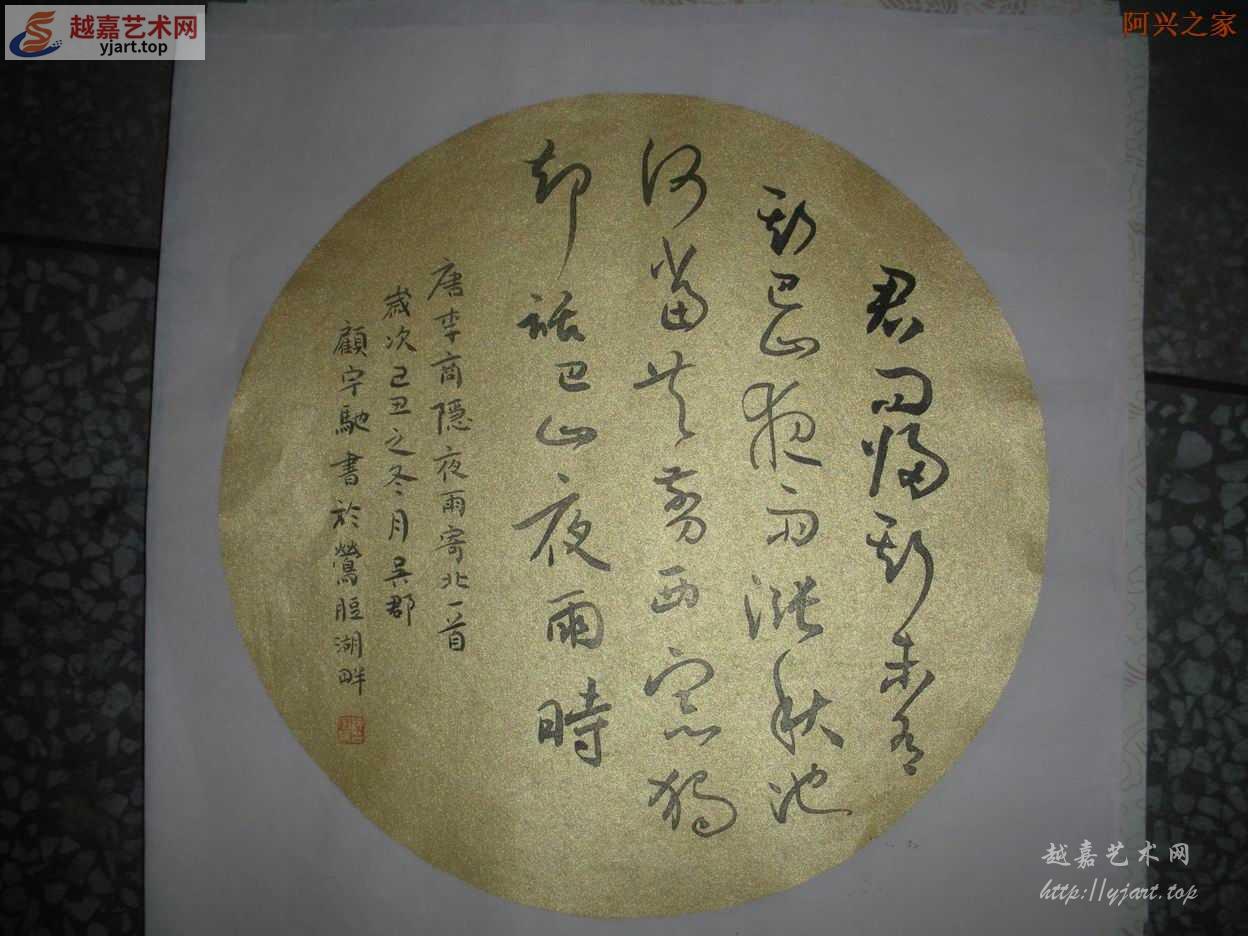 越嘉艺术网
yjart.top
阿兴之家
君問歸期未有
期巴山夜雨漲秋池
何當共剪西窗燭
却話巴山夜雨時
唐李商隱夜雨寄北一首
歲次己丑之冬月吳郡
顧宁馳書於鶯脰湖畔
越嘉艺术网
http://yjart.top